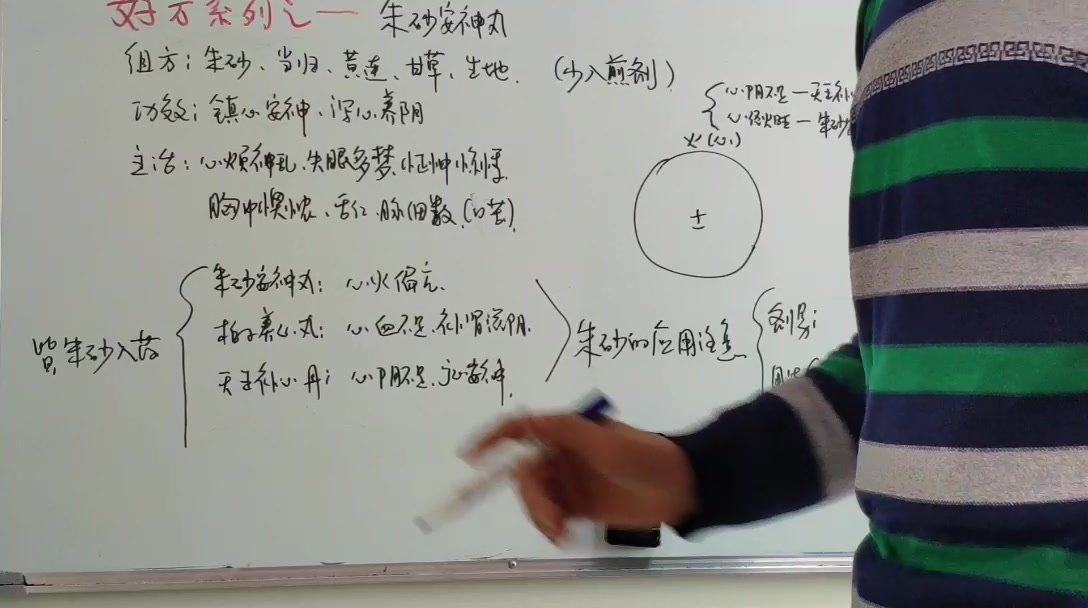 好方系列之一 朱砂安神丸
组方:朱砂、当归、黄连、甘草、生地. (少入煎剂)
功效:镇心安神、泻心养阴
主治:心烦神乱、失眠多梦、怔忡惊悸,
胸中懊憹、舌红、脉细数,(口苦).
心阴不足—天王补
心经火旺—朱砂
火(心)
土
皆朱砂入药
朱砂安神丸:心火偏亢.
柏子养心丸:心血不足.补肾滋阴.
天王补心丹:心阴不足.
朱砂的应用注意
剂量: